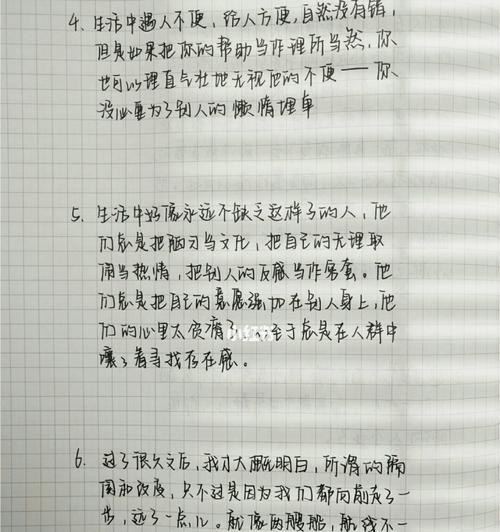 4、生活中遇人不便，给人方便，自然没有错，
但是如果把你的帮助当作理所当然，你
也可以理直气壮地无视他的不便——你
没必要为了别人的懒惰埋单
5、生活中好像永远不缺乏这样子的人，他
们总是把脑刁当文化，把自己的无理取
闹当热情，把别人的反感当作客套。他
们总是把自己的意愿强加在别人身上，他
们的心里太贫瘠了，以至于总是在人群中
嚷嚷着寻找存在感。
小红书
6、过了很久之后，我才大概明白，所谓的隔
阂和改变，只不过是因为我们都向前走了一
步，远了一点儿。就像两艘船，航线不一